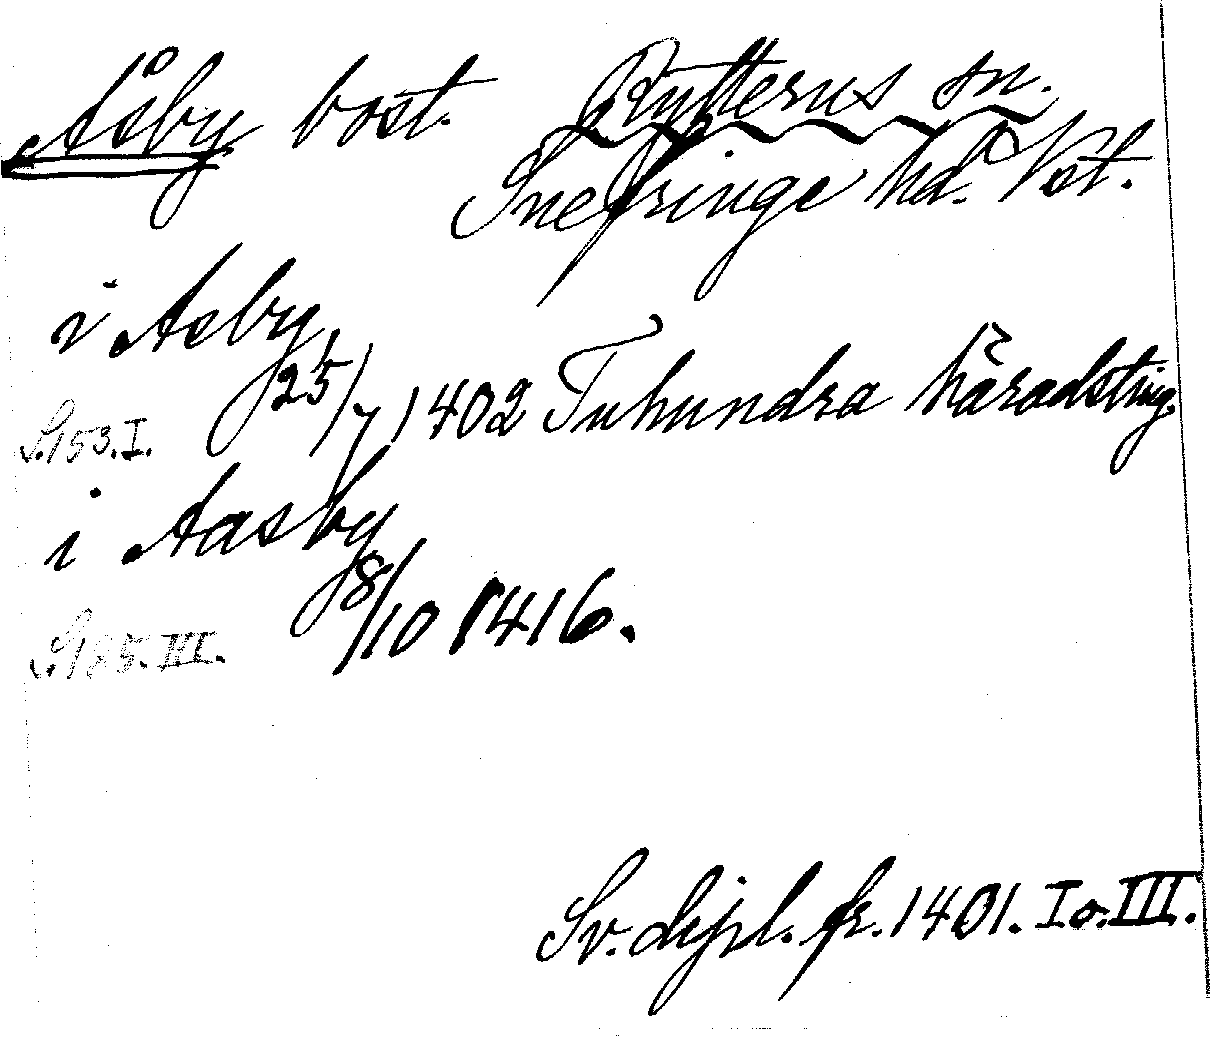 Åsby bost. Rytterns sn.
Snefringe hd. Vst.
i Asby
25/7 1402 Tuhundra häradsting.
S. 153. I.
i Aasby
8/10 1416.
S. 185. III.
Sv. dipl. fr. 1401. I o. III.